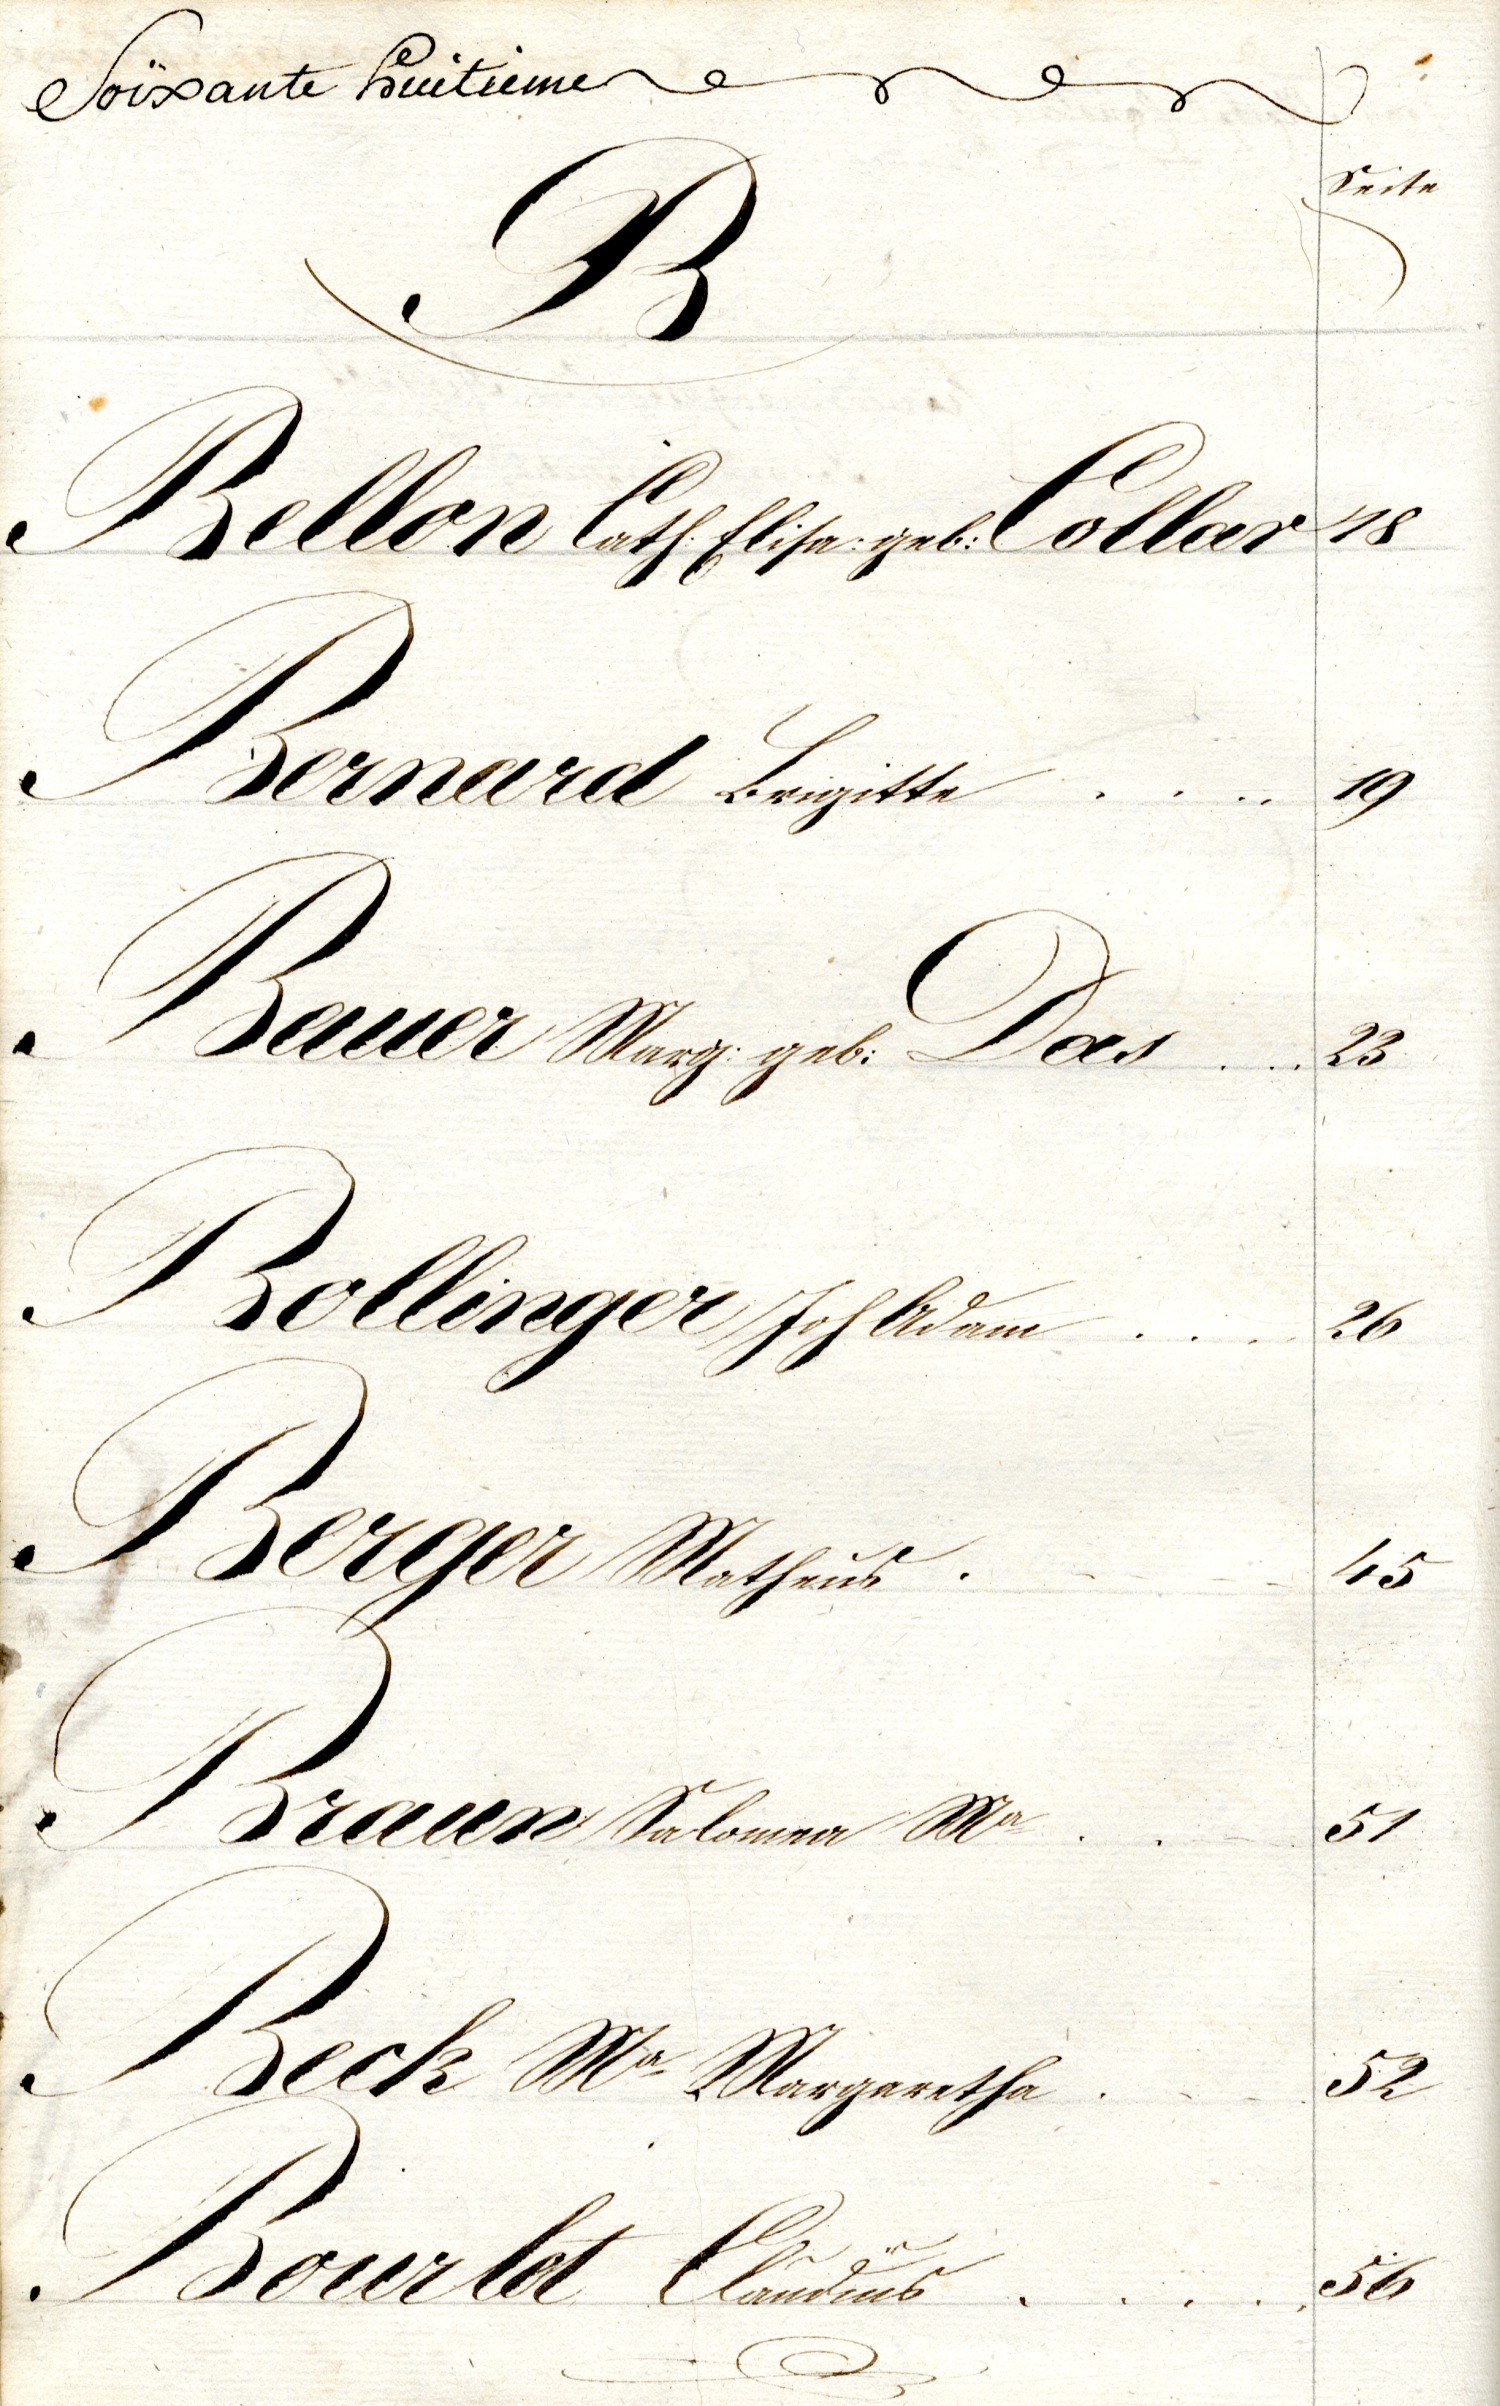 Soixante huitieme
Seite
B
Bellon Cath: Elisa: geb: Collar 18
Bernard Brigitte . . . . 19
Bauer Marg: geb: Das . . . 23
Bollinger Joh Adam . . . . 26
Berger Matheus . - - - - 45
Braun Salomea Ma . . - - 51
Beck Ma Margaretha . - - . 52
Bourlot Claudius . . . . . 56